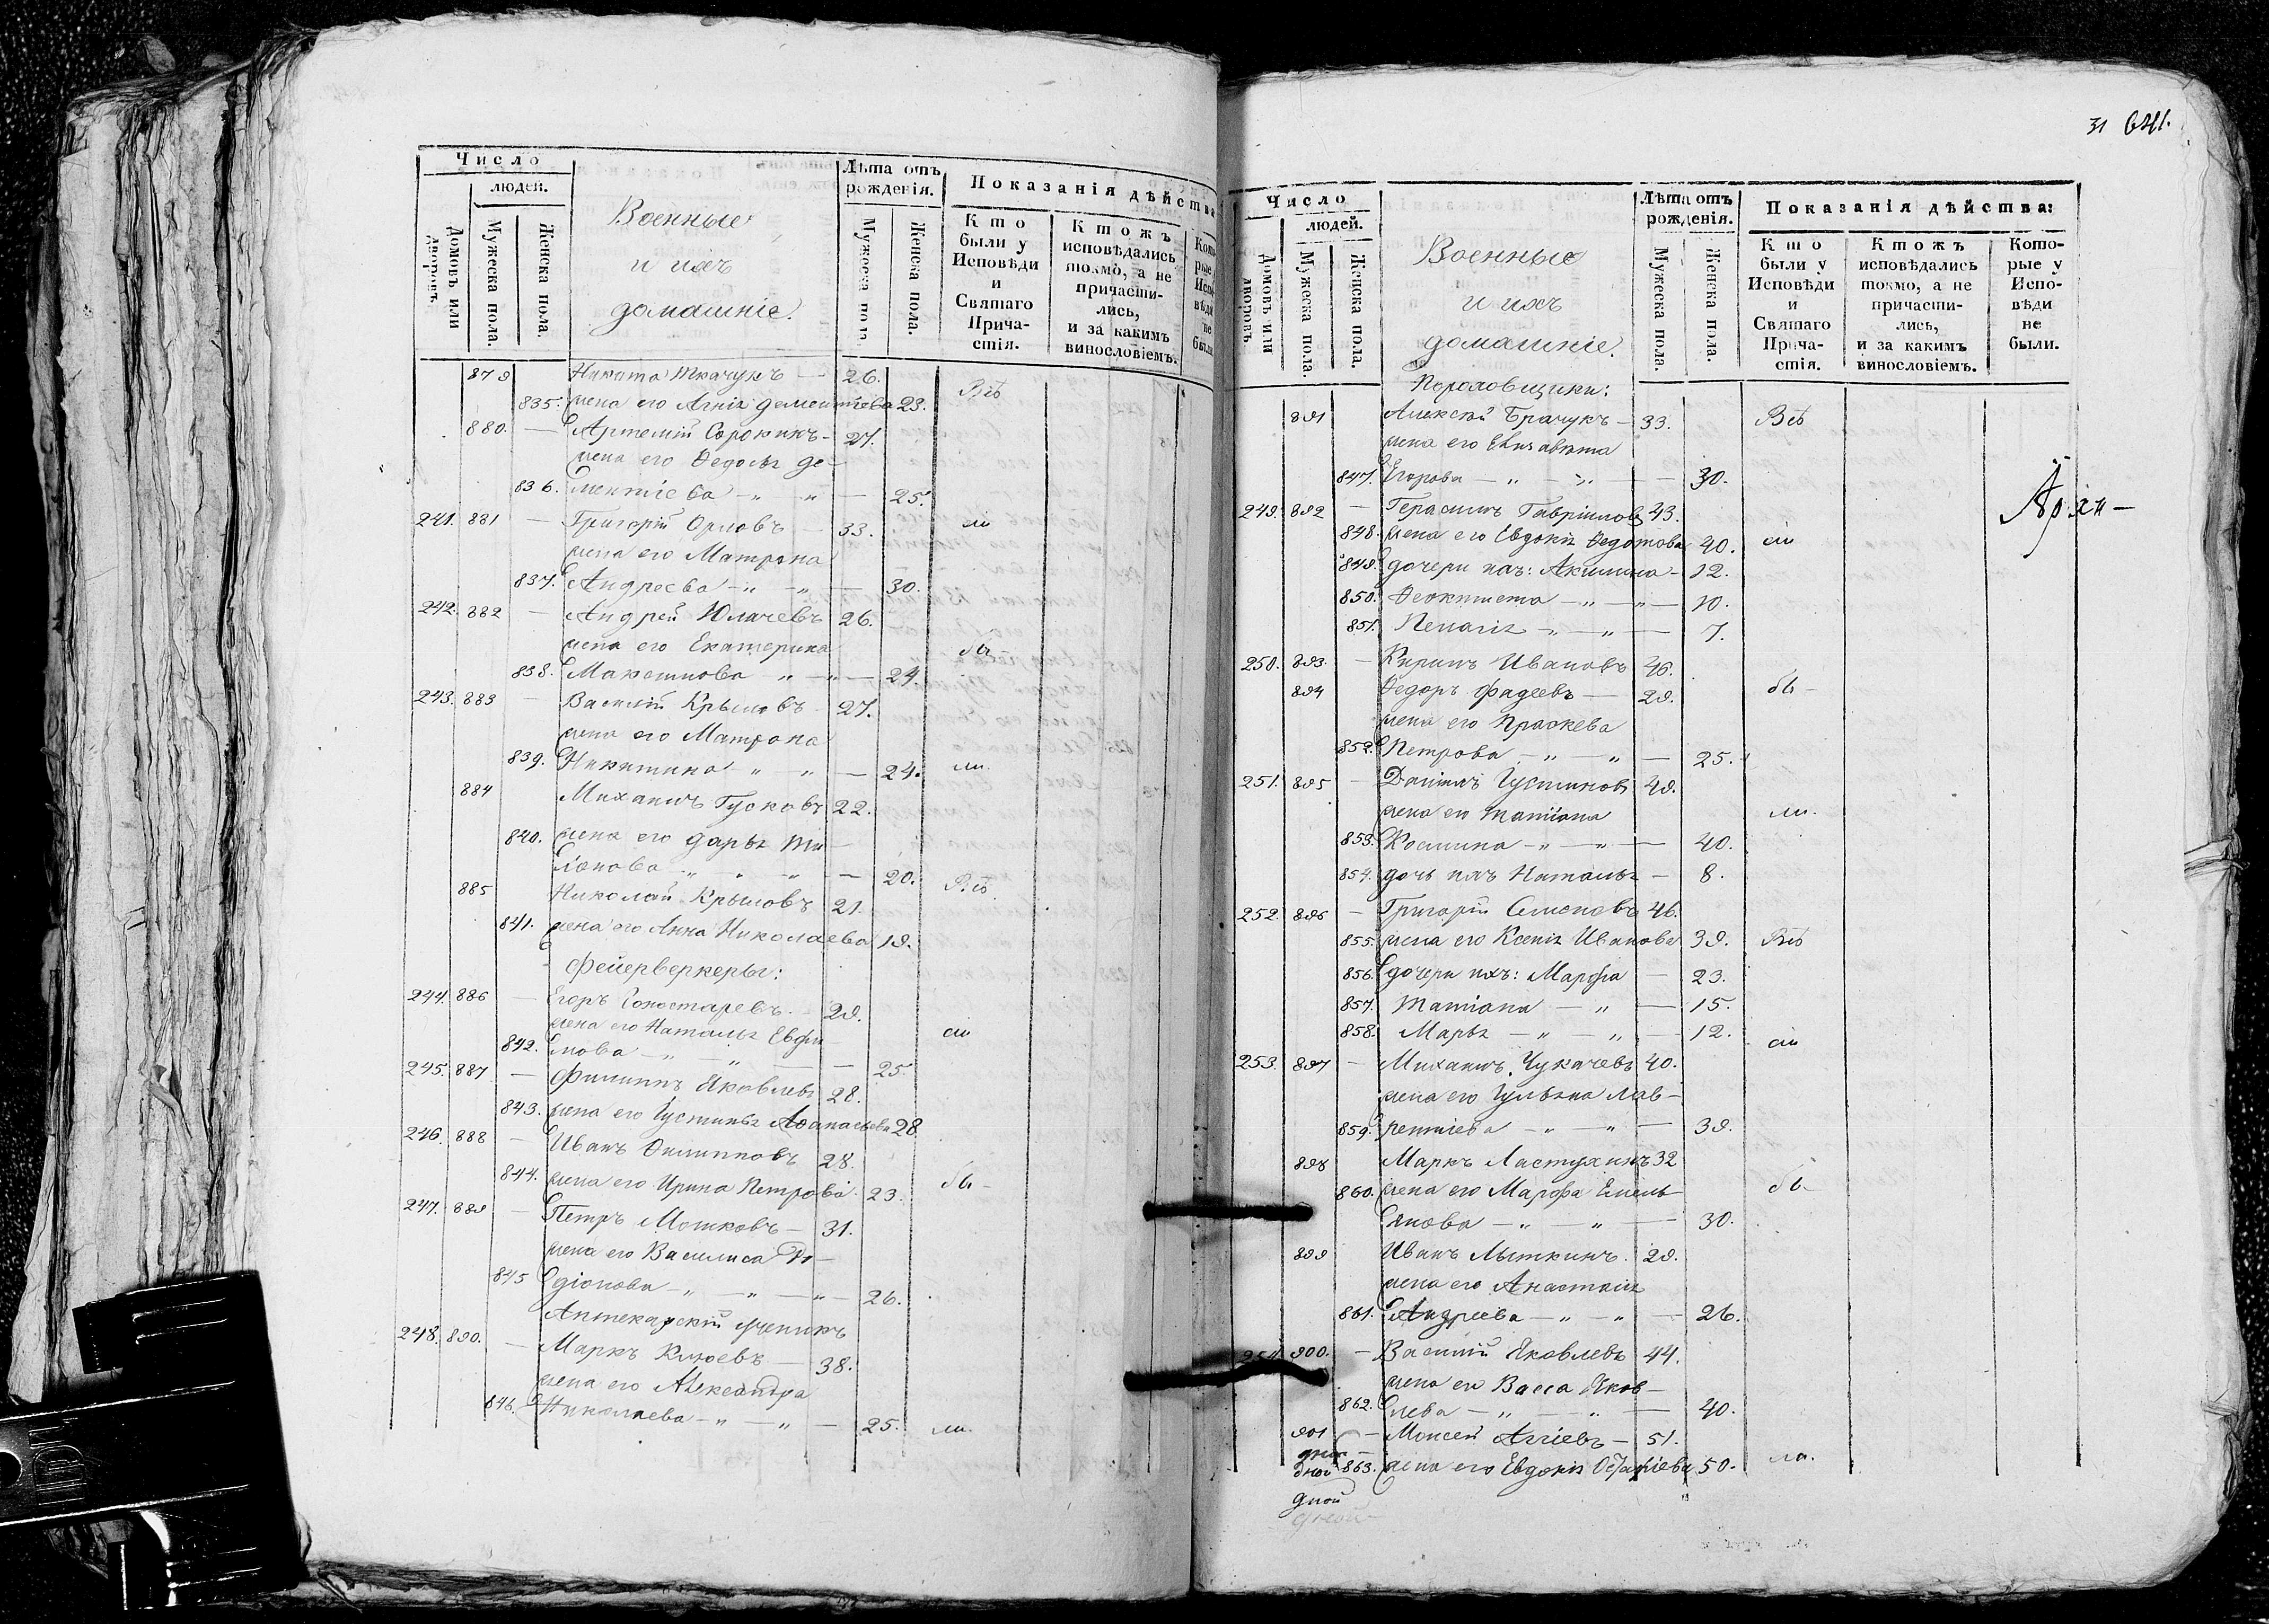 Число
людей.
Домовъ или дворовъ.
Мужеска пола.
Женска пола.
Военные
и ихъ
домашніе.
Лѣта отъ рожденія.
Мужеска пола
Женска пола.
Показанія дѣйства
Кто были у Исповѣди и Святаго Причастія.
Ктожъ исповѣдались токмо, а не причастились, и за какимъ винословіемъ.
Которые у Исповѣди не были.
879 Никита Ткачукъ — 26. Всѣ
835. жена его Агнія Дементіева 23.
880. — Артемій Сорокинъ — 27.
жена его Ѳедосья Де-
836. ментіева — " — " — 25.
241. 881 — Григорій Орловъ — 33. сіи
жена его Матрона
837. Андреева — " — " — 30.
242. 882 — Андрей Юлачевъ 26.
жена его Екатерина бы-
838. Максимова " — " — 24.
243. 883 — Василій Крыловъ 27.
жена его Матрона
839. Никитина " — " — 24. ли.
884 Михаилъ Гусковъ 22.
840. жена его Дарья Ти-
хонова — " — " — 20. Всѣ
885 Николай Крыловъ 21.
841. жена его Анна Николаева 19.
Фейерверкеры:
244. 886 — Егоръ Гоностаревъ. 29.
жена его Наталья Евфи- сіи
842. мова — " — " — 25.
245. 887 — Филиппъ Яковлевъ 28.
843. жена его Густинья Аѳанасьева 28.
246. 888 — Иванъ Филипповъ 28.
844. жена его Ирина Петрова. 23. бы-
247. 889 — Петръ Мотковъ — 31.
жена его Василиса Ро-
845 діонова — " — " — " — 26.
Аптекарскій ученикъ
248. 890. — Маркъ Клюевъ — 38.
жена его Александра
846. Николаева — " — " — 25. ли.
31 641.
Число
людей.
Домовъ или дворовъ.
Мужеска пола.
Женска пола.
Военные
и ихъ
домашніе.
Лѣта отъ рожденія.
Мужеска пола
Женска пола.
Показанія дѣйства:
Кто были у Исповѣди и Святаго Причастія.
Ктожъ исповѣдались токмо, а не причастились, и за какимъ винословіемъ.
Которые у Исповѣди не были.
Пороховщики:
891 Алексѣй Брачукъ — 33. Всѣ
жена его Елизавета
847. Егорова — " — " — 30.
249. 892 — Герасимъ Гавриловъ 43.
848. жена его Евдокія Ѳедотова 40. сіи
849. дочери ихъ: Акилина — 12.
850. Ѳеоктиста — " — " — 10.
851. Пелагія — " — " — 7.
250. 893. — Кирилъ Ивановъ 46.
894 Ѳедоръ Фадеевъ — 29. бы-
жена его Праскева
852. Петрова — " — " — 25.
251. 895 — Даніилъ Густиновъ 49.
жена его Татіана ли.
853. Космина — " — " — 40.
854. дочь ихъ Наталья — 8.
252. 896 — Григорій Семеновъ 46.
855. жена его Ксенія Иванова 39. Всѣ
856. дочери ихъ: Марфа — 23.
857. Татіана — " — 15.
858. Марья — " — " — 12. сіи
253. 897 — Михаилъ Чукачевъ 40.
жена его Гульяна Лав-
859. рентіева — " — " — 39.
898 Маркъ Ластухинъ 32
860. жена его Марфа Емель- бы-
янова — " — " — 30.
899 Иванъ Лыткинъ. 29.
жена его Анастасія
861. Андреева — " — " — 26.
254. 900. — Василій Яковлевъ 44.
жена его Васса Яков-
862. лева — " — " — 40.
901 — Моисей Агіевъ — 51.
863. жена его Евдокія Остафіева 50. ли.
дной
дной